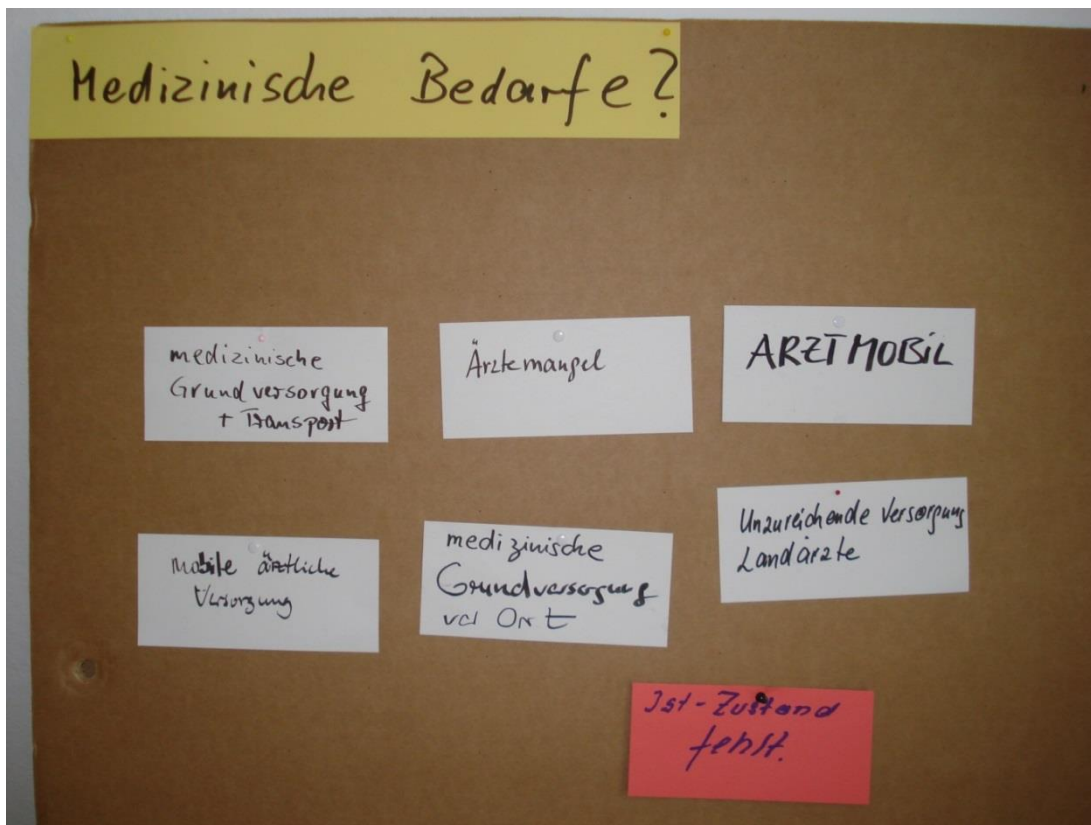 Medizinische Bedarfe?
medizinische
Grundversorgung
+ Transport
Ärztemangel
ARZTMOBIL
mobile ärztliche
Versorgung
medizinische
Grundversorgung
vor Ort
Unzureichende Versorgung
Landärzte
Ist-Zustand
fehlt.